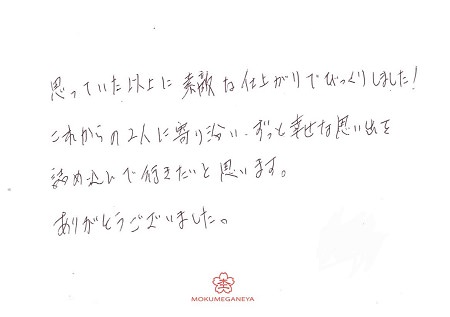 思っていた以上に素敵な仕上がりでびっくりしました!
これからの2人に寄り沿い、ずっと幸せな思い出を
詰め込んで行きたいと思います。
ありがとうございました。
MOKUMEGANEYA